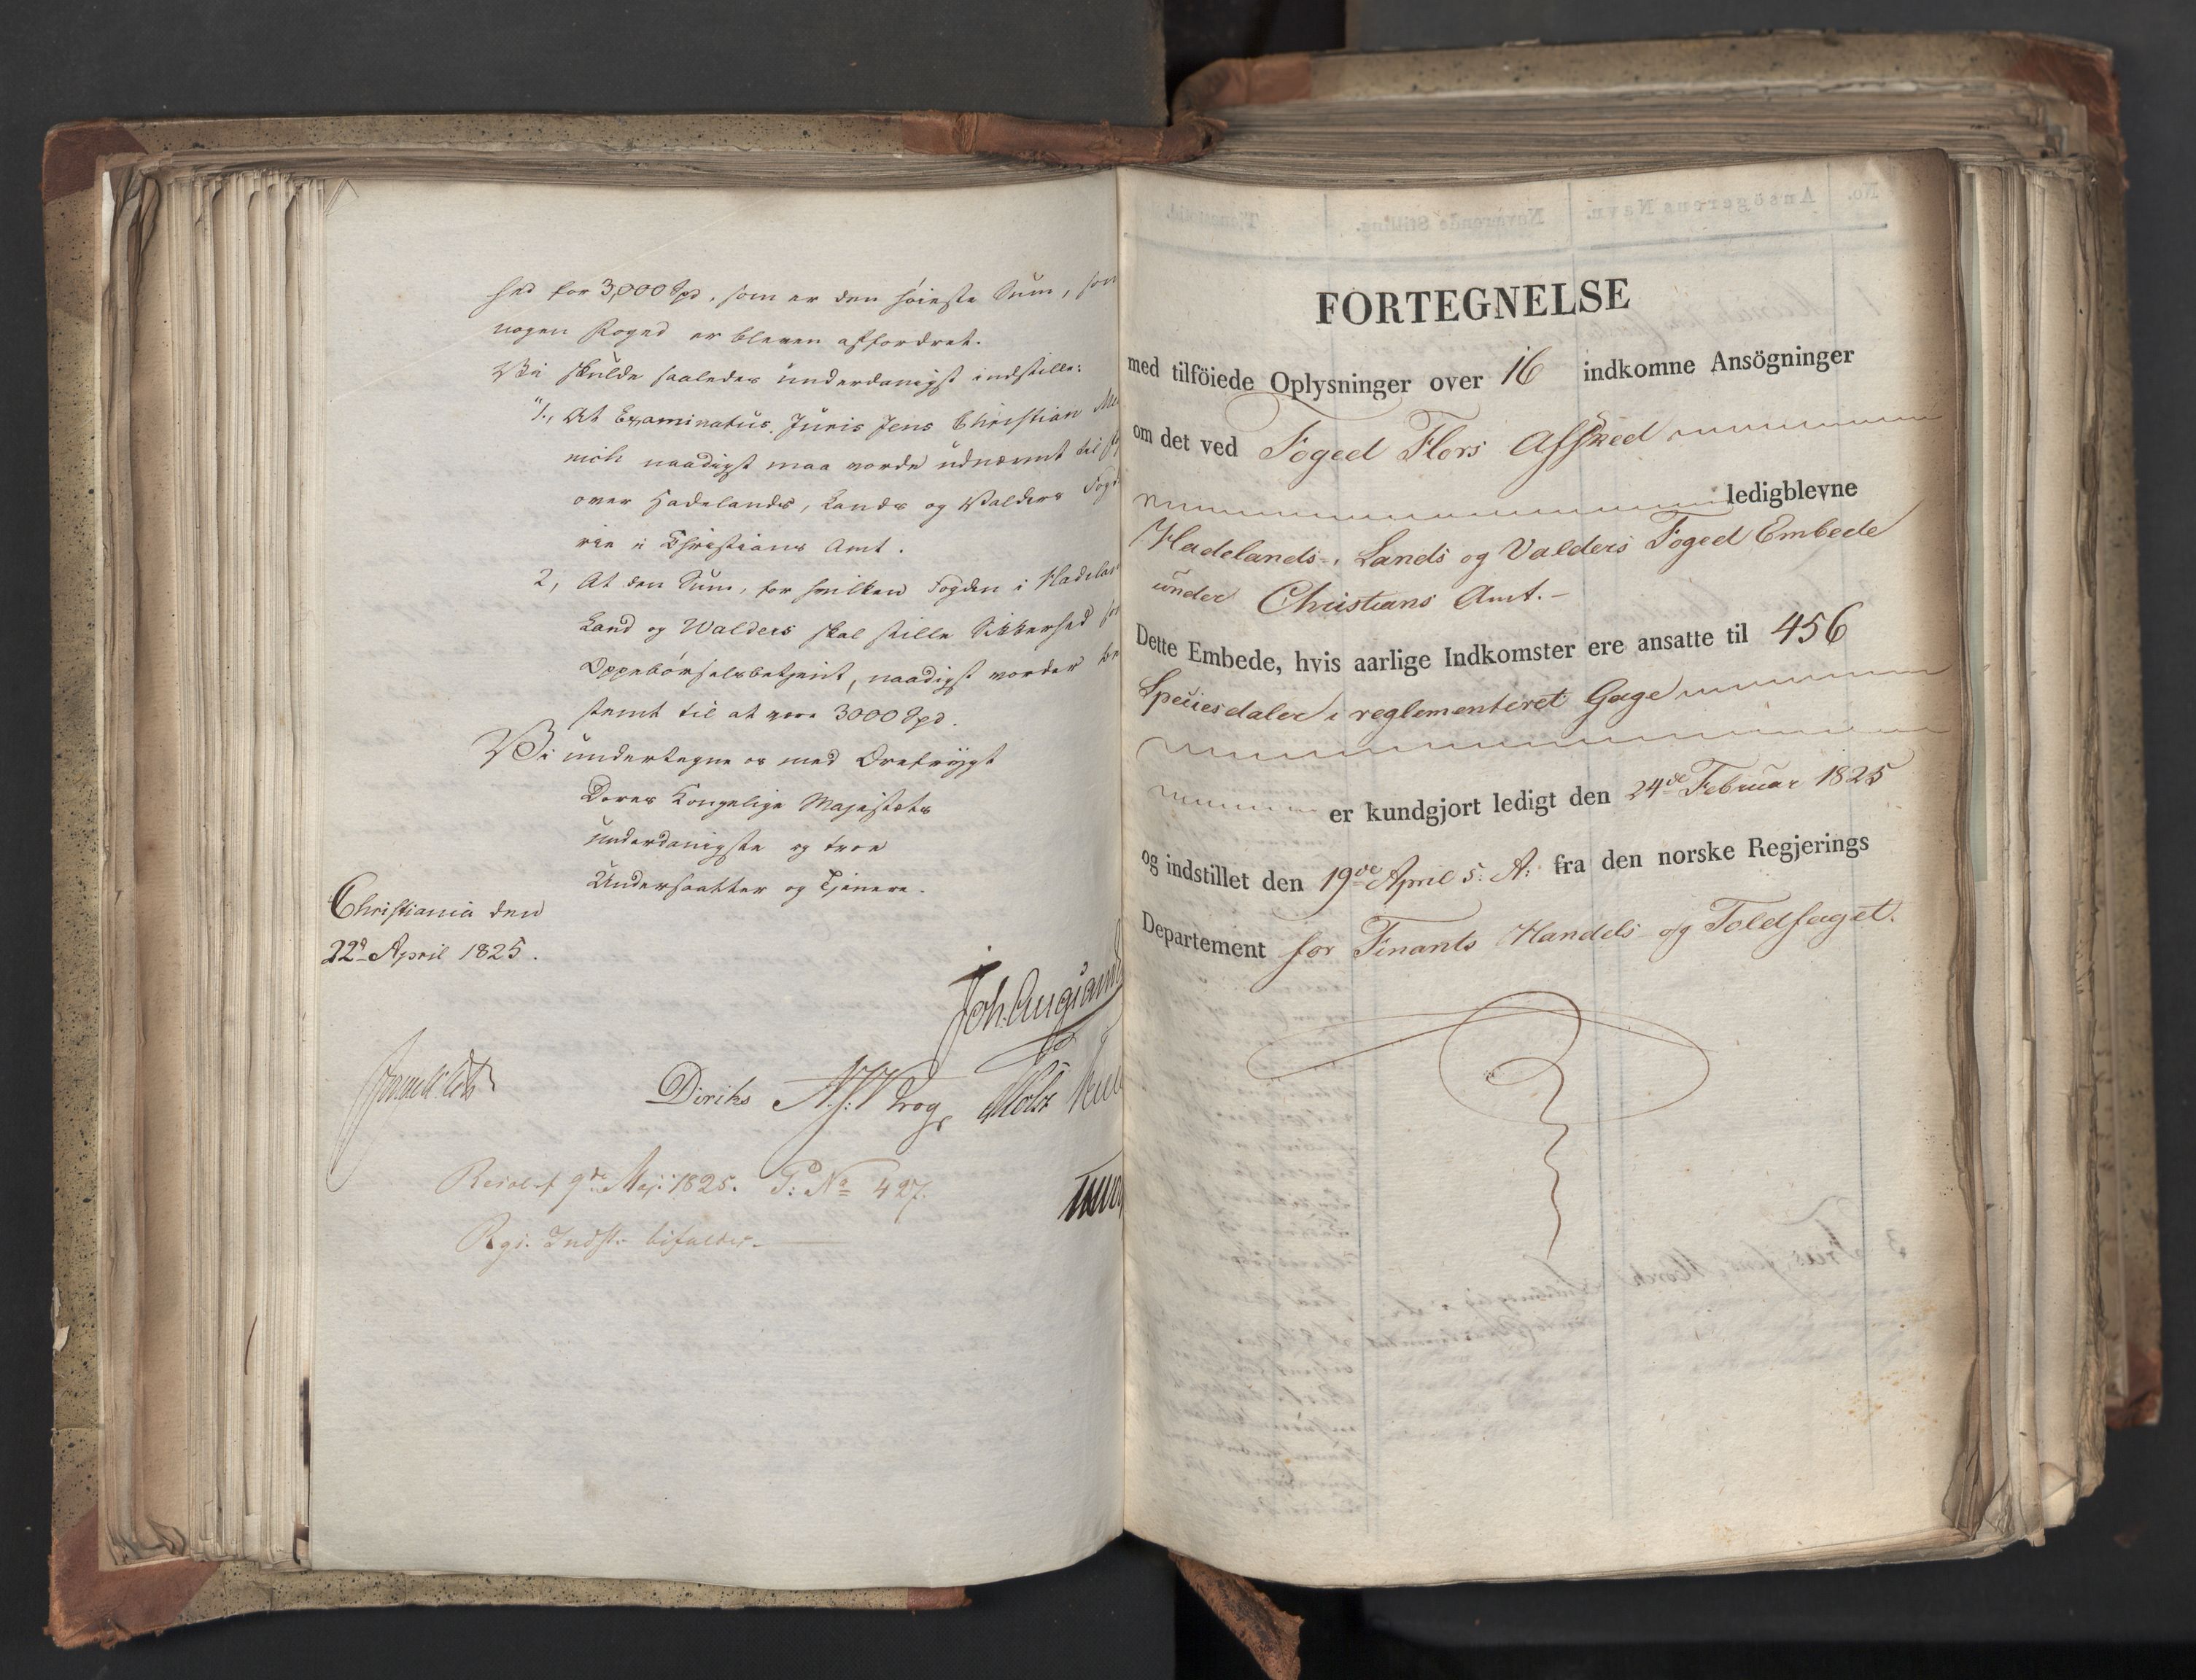 hed for 3,000 Spd, som er den höieste Sum, som
nogen Foged er bleven affordret.
Vi skulde saaledes underdanigst indstille:
"1., At Examinatus Juris Jens Christian
nich naadigst maa vorde udnævnt til
over Hadelands, Lands og Valders Fogde
rie i Christians Amt.
2, At den Sum, for hvilken Fogden i Hadeland
Land og Walders skal stille Sikkerhed som
Oppebörselsbetjent, naadigst vorder be
stemt til at være 3000 Spd.
Vi undertegne os med Ærefrygt
Deres Kongelige Majestæts
underdanigste og troe
Undersaatter og Tjenere.
Christiania den
22d April 1825.
Joh. Aug. Sand
Diriks N. J. Krog Motz
Resol. af 9de Maj: 1825. P: No 427.
Rgj. Indst. bifaldes.
FORTEGNELSE
med tilföiede Oplysninger over 16 indkomne Ansögninger
om det ved Foged Flors Afsked
ledigblevne
Hadelands-, Lands og Valders Foged Embede
under Christians Amt.-
Dette Embede, hvis aarlige Indkomster ere ansatte til 456
Speciesdaler i reglementeret Gage
er kundgjort ledigt den 24de Februar 1825
og indstillet den 19de April s: A: fra den norske Regjerings
Departement for Finants Handels- og Toldfaget.